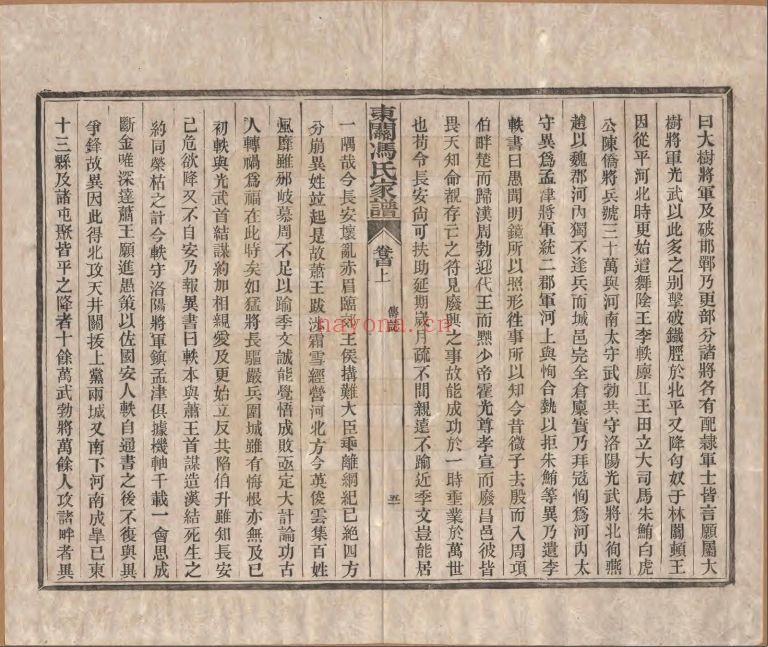 曰大樹將軍及破邯鄲乃更部分諸將各有配隸軍士皆言願屬大
樹將軍光武以此多之别擊破鐵脛於北平又降匈奴于林闟頓王
因從平河北時更始遣舞陰王李軼廪丘王田立大司馬朱鮪白虎
公陳僑將兵號三十萬與河南太守武勃共守洛陽光武將北徇燕
趙以魏郡河內獨不逢兵而城邑完全倉廩實乃拜寇恂爲河內太
守異爲孟津將軍統二郡軍河上與恂合埶以拒朱鮪等異乃遺李
軼書曰愚聞明鏡所以照形徃事所以知今昔微子去殷而入周項
伯畔楚而歸漢周勃迎代王而黜少帝霍光尊孝宣而廢昌邑彼皆
畏天知命覩存亡之符見廢興之事故能成功於一時垂業於萬世
也苟令長安尙可扶助延期歲月疏不間親遠不踰近季文豈能居
東關馮氏家譜
卷首上
傳誌
五
一隅哉今長安壞亂赤眉臨郊王侯搆難大臣乖離綱紀已絶四方
分崩異姓竝起是故蕭王跋涉霜雪經營河北方今英俊雲集百姓
風靡雖邠岐慕周不足以踰季文誠能覺悟成敗亟定大計論功古
人轉禍爲福在此時矣如猛將長驅嚴兵圍城雖有悔恨亦無及已
初軼與光武首結謀約加相親愛及更始立反共陷伯升雖知長安
已危欲降又不自安乃報異書曰軼本與蕭王首謀造漢結死生之
約同榮枯之計今軼守洛陽將軍鎮孟津俱據機軸千載一會思成
斷金唯深達蕭王願進愚策以佐國安人軼自通書之後不復與異
爭鋒故異因此得北攻天井關拔上黨兩城又南下河南成臯已東
十三縣及諸屯聚皆平之降者十餘萬武勃將萬餘人攻諸畔者異
nayona.cn